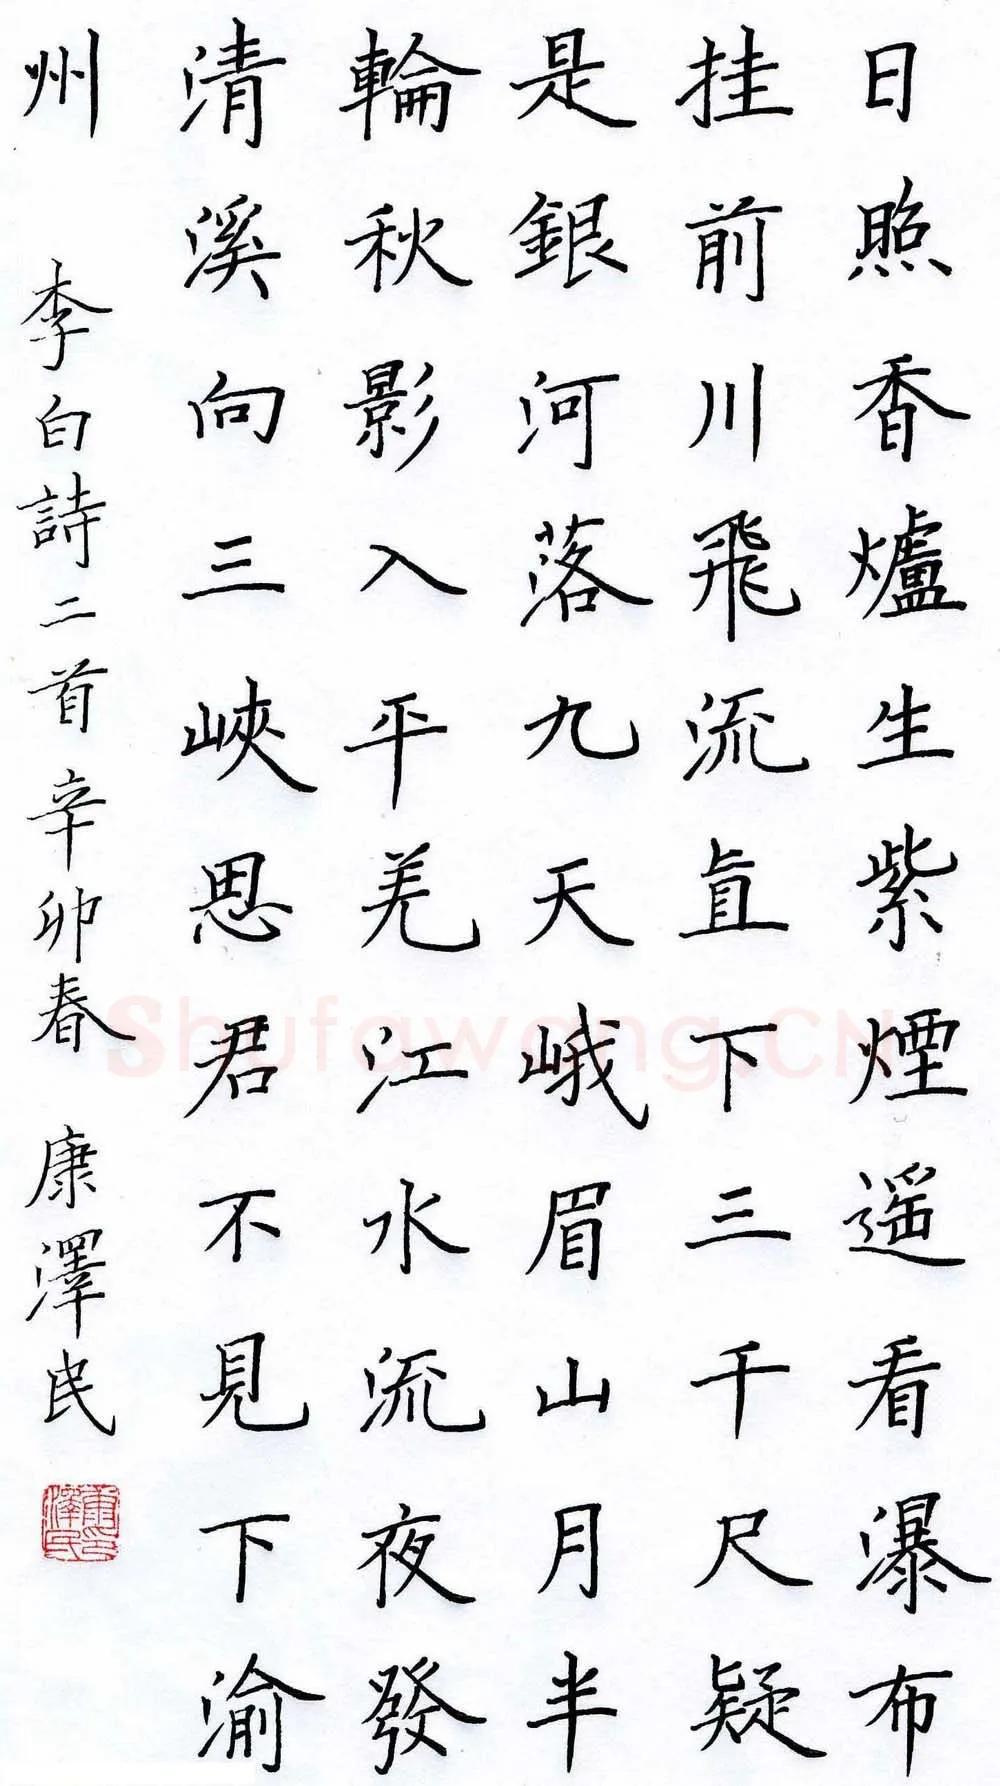 日照香爐生紫煙遥看瀑布
挂前川飛流直下三千尺疑
是銀河落九天峨眉山月半
輪秋影入平羌江水流夜發
清溪向三峽思君不見下渝
州 李白詩二首辛卯春 康澤民
康澤民印
Shufawang.CN